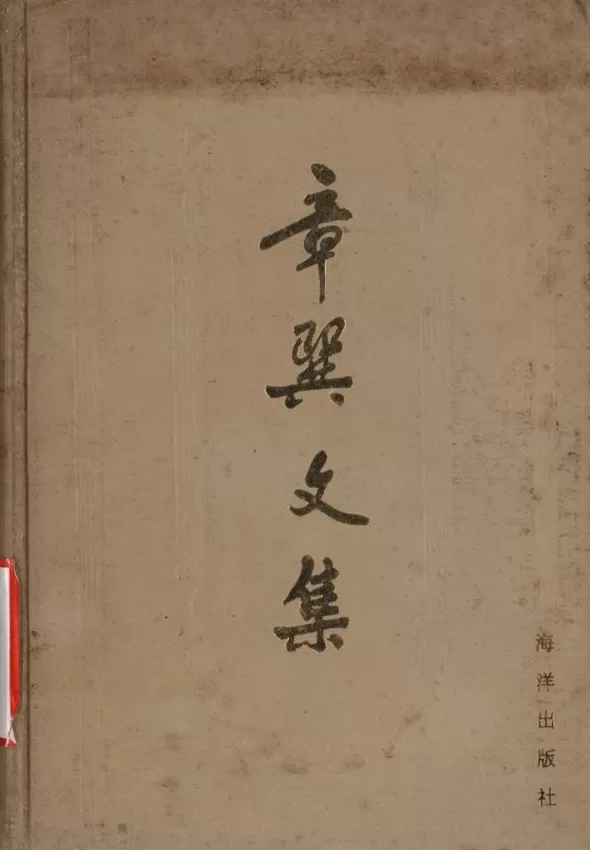 章巽文集
海洋出版社